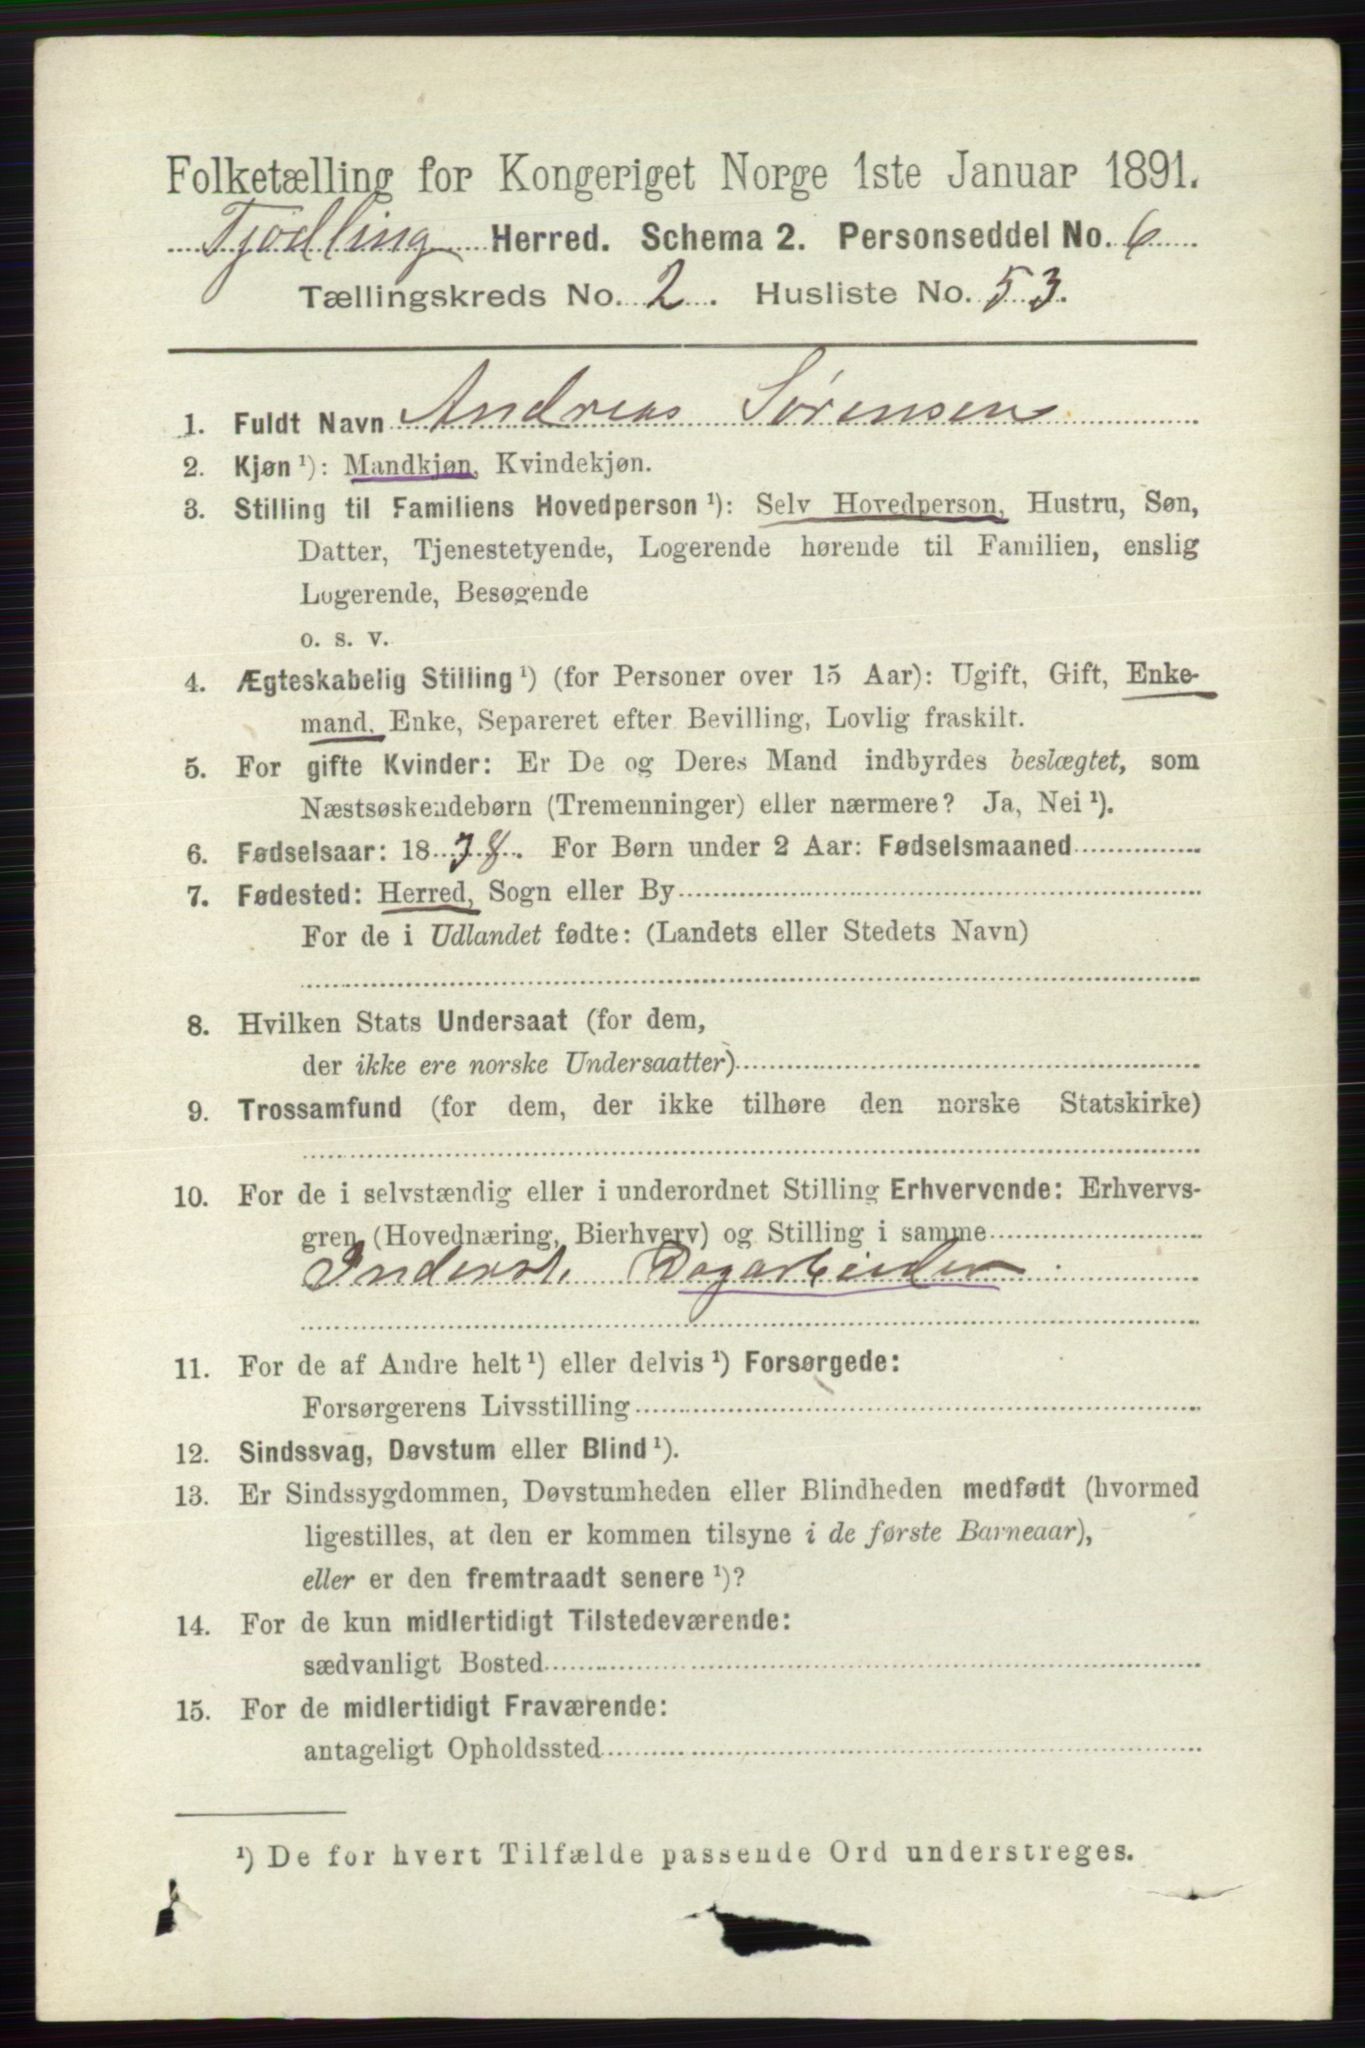 Folketælling for Kongeriget Norge 1ste Januar 1891.
Tjødling Herred. Schema 2. Personseddel No. 6
Tællingskreds No. 2. Husliste No. 53.
1. Fuldt Navn Andreas Sørensen
2. Kjøn ¹): Mandkjøn, Kvindekjøn.
3. Stilling til Familiens Hovedperson ¹): Selv Hovedperson, Hustru, Søn,
Datter, Tjenestetyende, Logerende hørende til Familien, enslig
Logerende, Besøgende
o. s. v.
4. Ægteskabelig Stilling ¹) (for Personer over 15 Aar): Ugift, Gift, Enke-
mand, Enke, Separeret efter Bevilling, Lovlig fraskilt.
5. For gifte Kvinder: Er De og Deres Mand indbyrdes beslægtet, som
Næstsøskendebørn (Tremenninger) eller nærmere? Ja, Nei ¹).
6. Fødselsaar: 18 For Børn under 2 Aar: Fødselsmaaned
7. Fødested: Herred, Sogn eller By
For de i Udlandet fødte: (Landets eller Stedets Navn)
8. Hvilken Stats Undersaat (for dem,
der ikke ere norske Undersaatter)
9. Trossamfund (for dem, der ikke tilhøre den norske Statskirke)
10. For de i selvstændig eller i underordnet Stilling Erhvervende: Erhvervs-
gren (Hovednæring, Bierhverv) og Stilling i samme
Inderst. Dagarbeider
11. For de af Andre helt ¹) eller delvis ¹) Forsørgede:
Forsørgerens Livsstilling
12. Sindssvag, Døvstum eller Blind ¹).
13. Er Sindssygdommen, Døvstumheden eller Blindheden medfødt (hvormed
ligestilles, at den er kommen tilsyne i de første Barneaar),
eller er den fremtraadt senere ¹)?
14. For de kun midlertidigt Tilstedeværende:
sædvanligt Bosted
15. For de midlertidigt Fraværende:
antageligt Opholdssted
¹) De for hvert Tilfælde passende Ord understreges.